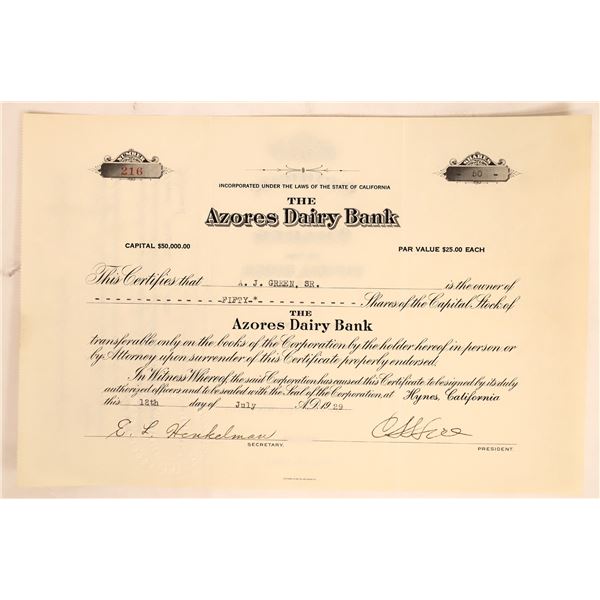 NUMBER
216
SHARES
- 50 -
INCORPORATED UNDER THE LAWS OF THE STATE OF CALIFORNIA
THE
Azores Dairy Bank
CAPITAL $50,000.00
PAR VALUE $25.00 EACH
This Certifies that A. J. GREEN, SR. is the owner of
- - - - - - - - - - - - - -FIFTY-*- - - - - - - - - - - Shares of the Capital Stock of
THE
Azores Dairy Bank
transferable only on the books of the Corporation by the holder hereof in person or
by Attorney upon surrender of this Certificate properly endorsed.
In Witness Whereof, the said Corporation has caused this Certificate to be signed by its duly
authorized officers and to be sealed with the Seal of the Corporation, at Hynes, California
this 18th day of July A.D. 1929
E. L. Henkelman
SECRETARY.
PRESIDENT.